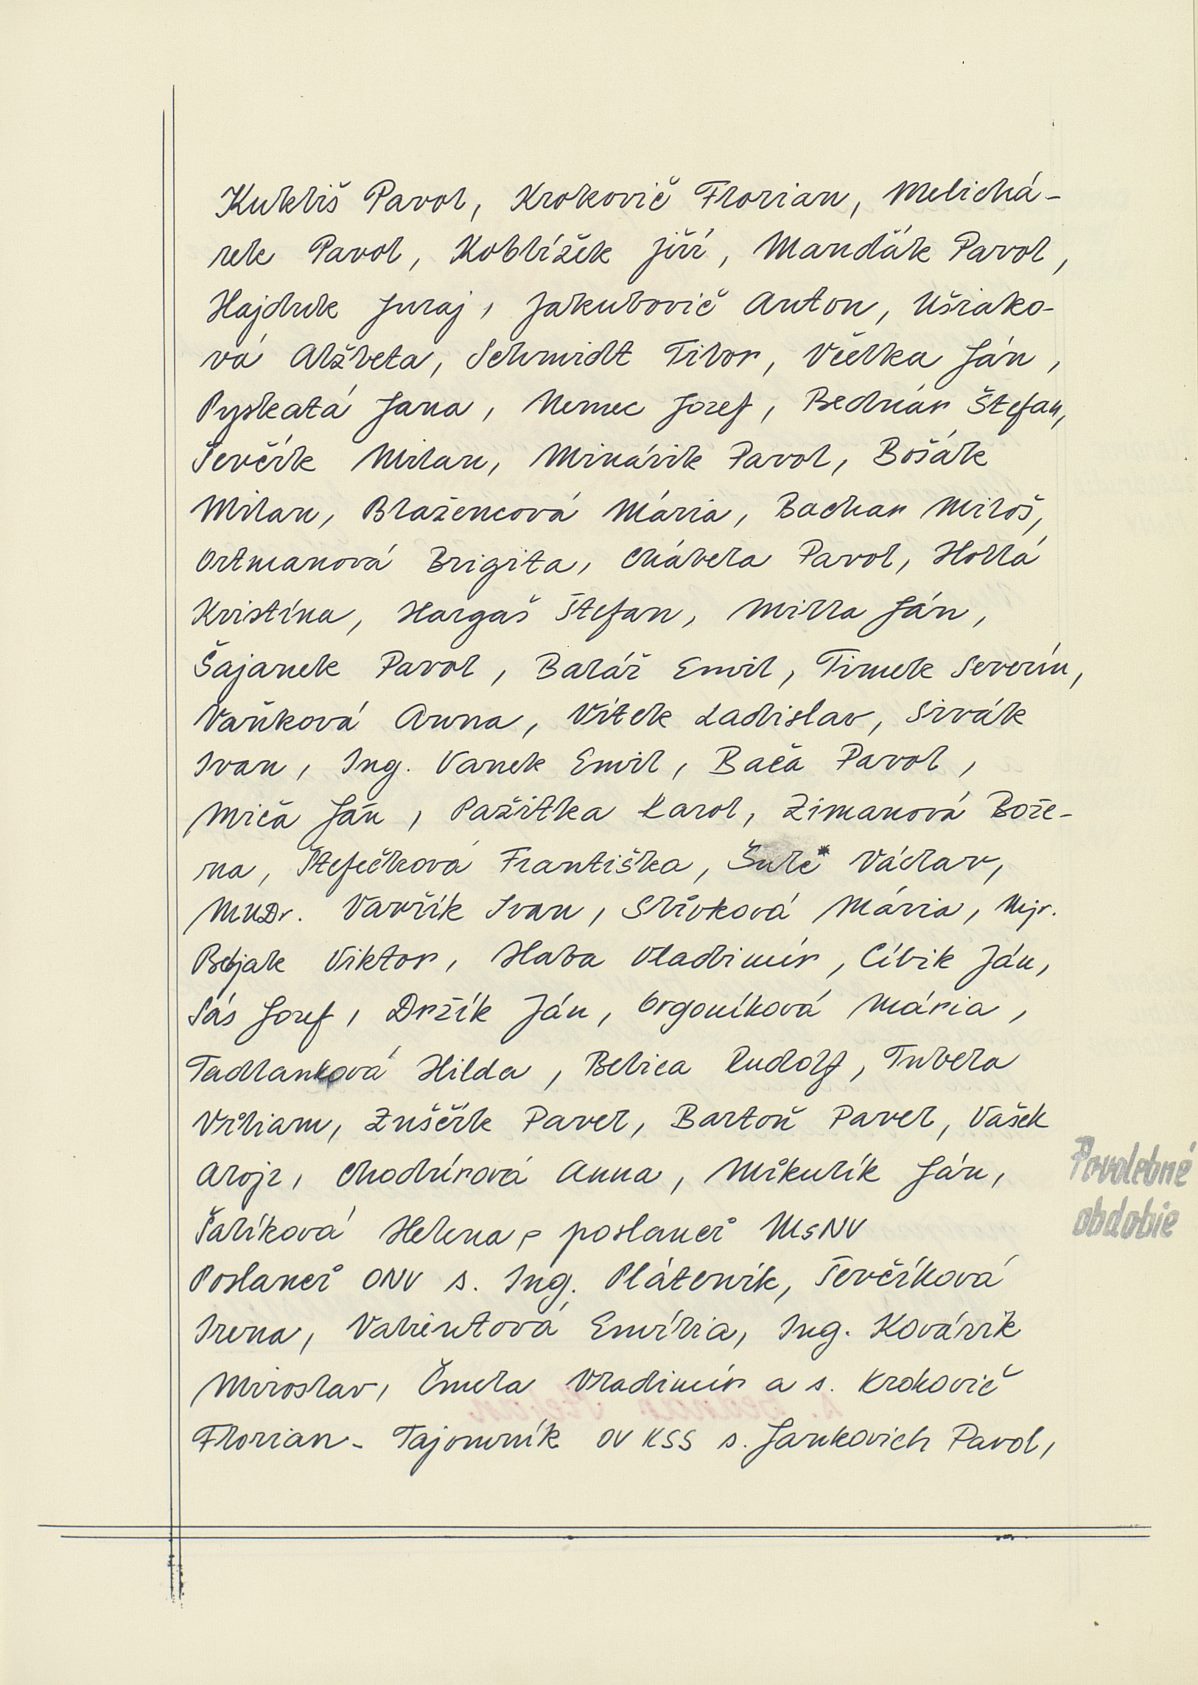 Kukliš Pavol, Krokovič Florian, Melichá-
rek Pavol, Koblížek Jiří, Mandák Pavol,
Hajduk Juraj, Jakubovič Anton, Ušiako-
vá Alžbeta, Schmidt Tibor, Včelka Ján,
Pyskatá Jana, Nemec Jozef, Bednár Štefan,
Ševčík Milan, Minárik Pavol, Bošák
Milan, Blažencová Mária, Bachar Miloš,
Ortmanová Brigita, Chábela Pavol, Hollá
Kristína, Hargaš Štefan, Milla Ján,
Šajanek Pavol, Baláž Emil, Timek Severín,
Vaňková Anna, Vítek Ladislav, Sivák
Ivan, Ing. Vanek Emil, Bača Pavol,
Miča Ján, Pažitka Karol, Zimanová Bože-
na, Štefečková Františka, Šulc Václav,
MUDr. Vavřík Ivan, Slívková Mária, Mjr.
Viktor, Haba Vladimír, Cíbik Ján,
Sás Jozef, Držík Ján, Orgoníková Mária,
Tadlanková Hilda, Belica Rudolf, Tubela
Viliam, Zuščík Pavel, Bartoň Pavel, Vašek
Alojz, Chodúrová Anna, Mikulík Ján,
Šalíková Helena, poslanci MsNV
Poslanci ONV s. Ing. Pláteník, Ševčíková
Irena, Valientová Emília, Ing. Kovárik
Miroslav, Čmela Vladimír a s. Krokovič
Florian - Tajomník OV KSS s. Jankovich Pavol,
Povolebné
obdobie